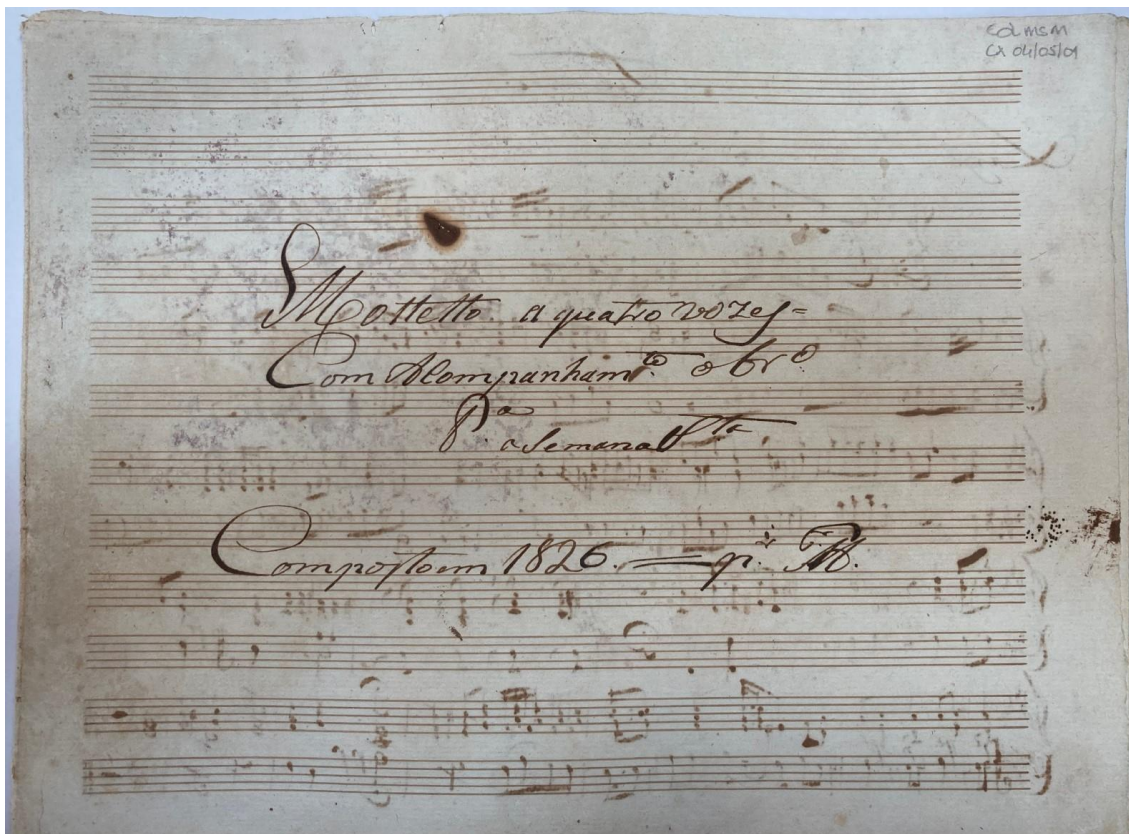 COL MSM
CX 04/05/01
Mottetto a quatro vozes =
Com Acompanham.to obr.o
P.a a Semana S.ta
Composto em 1826. — p.r